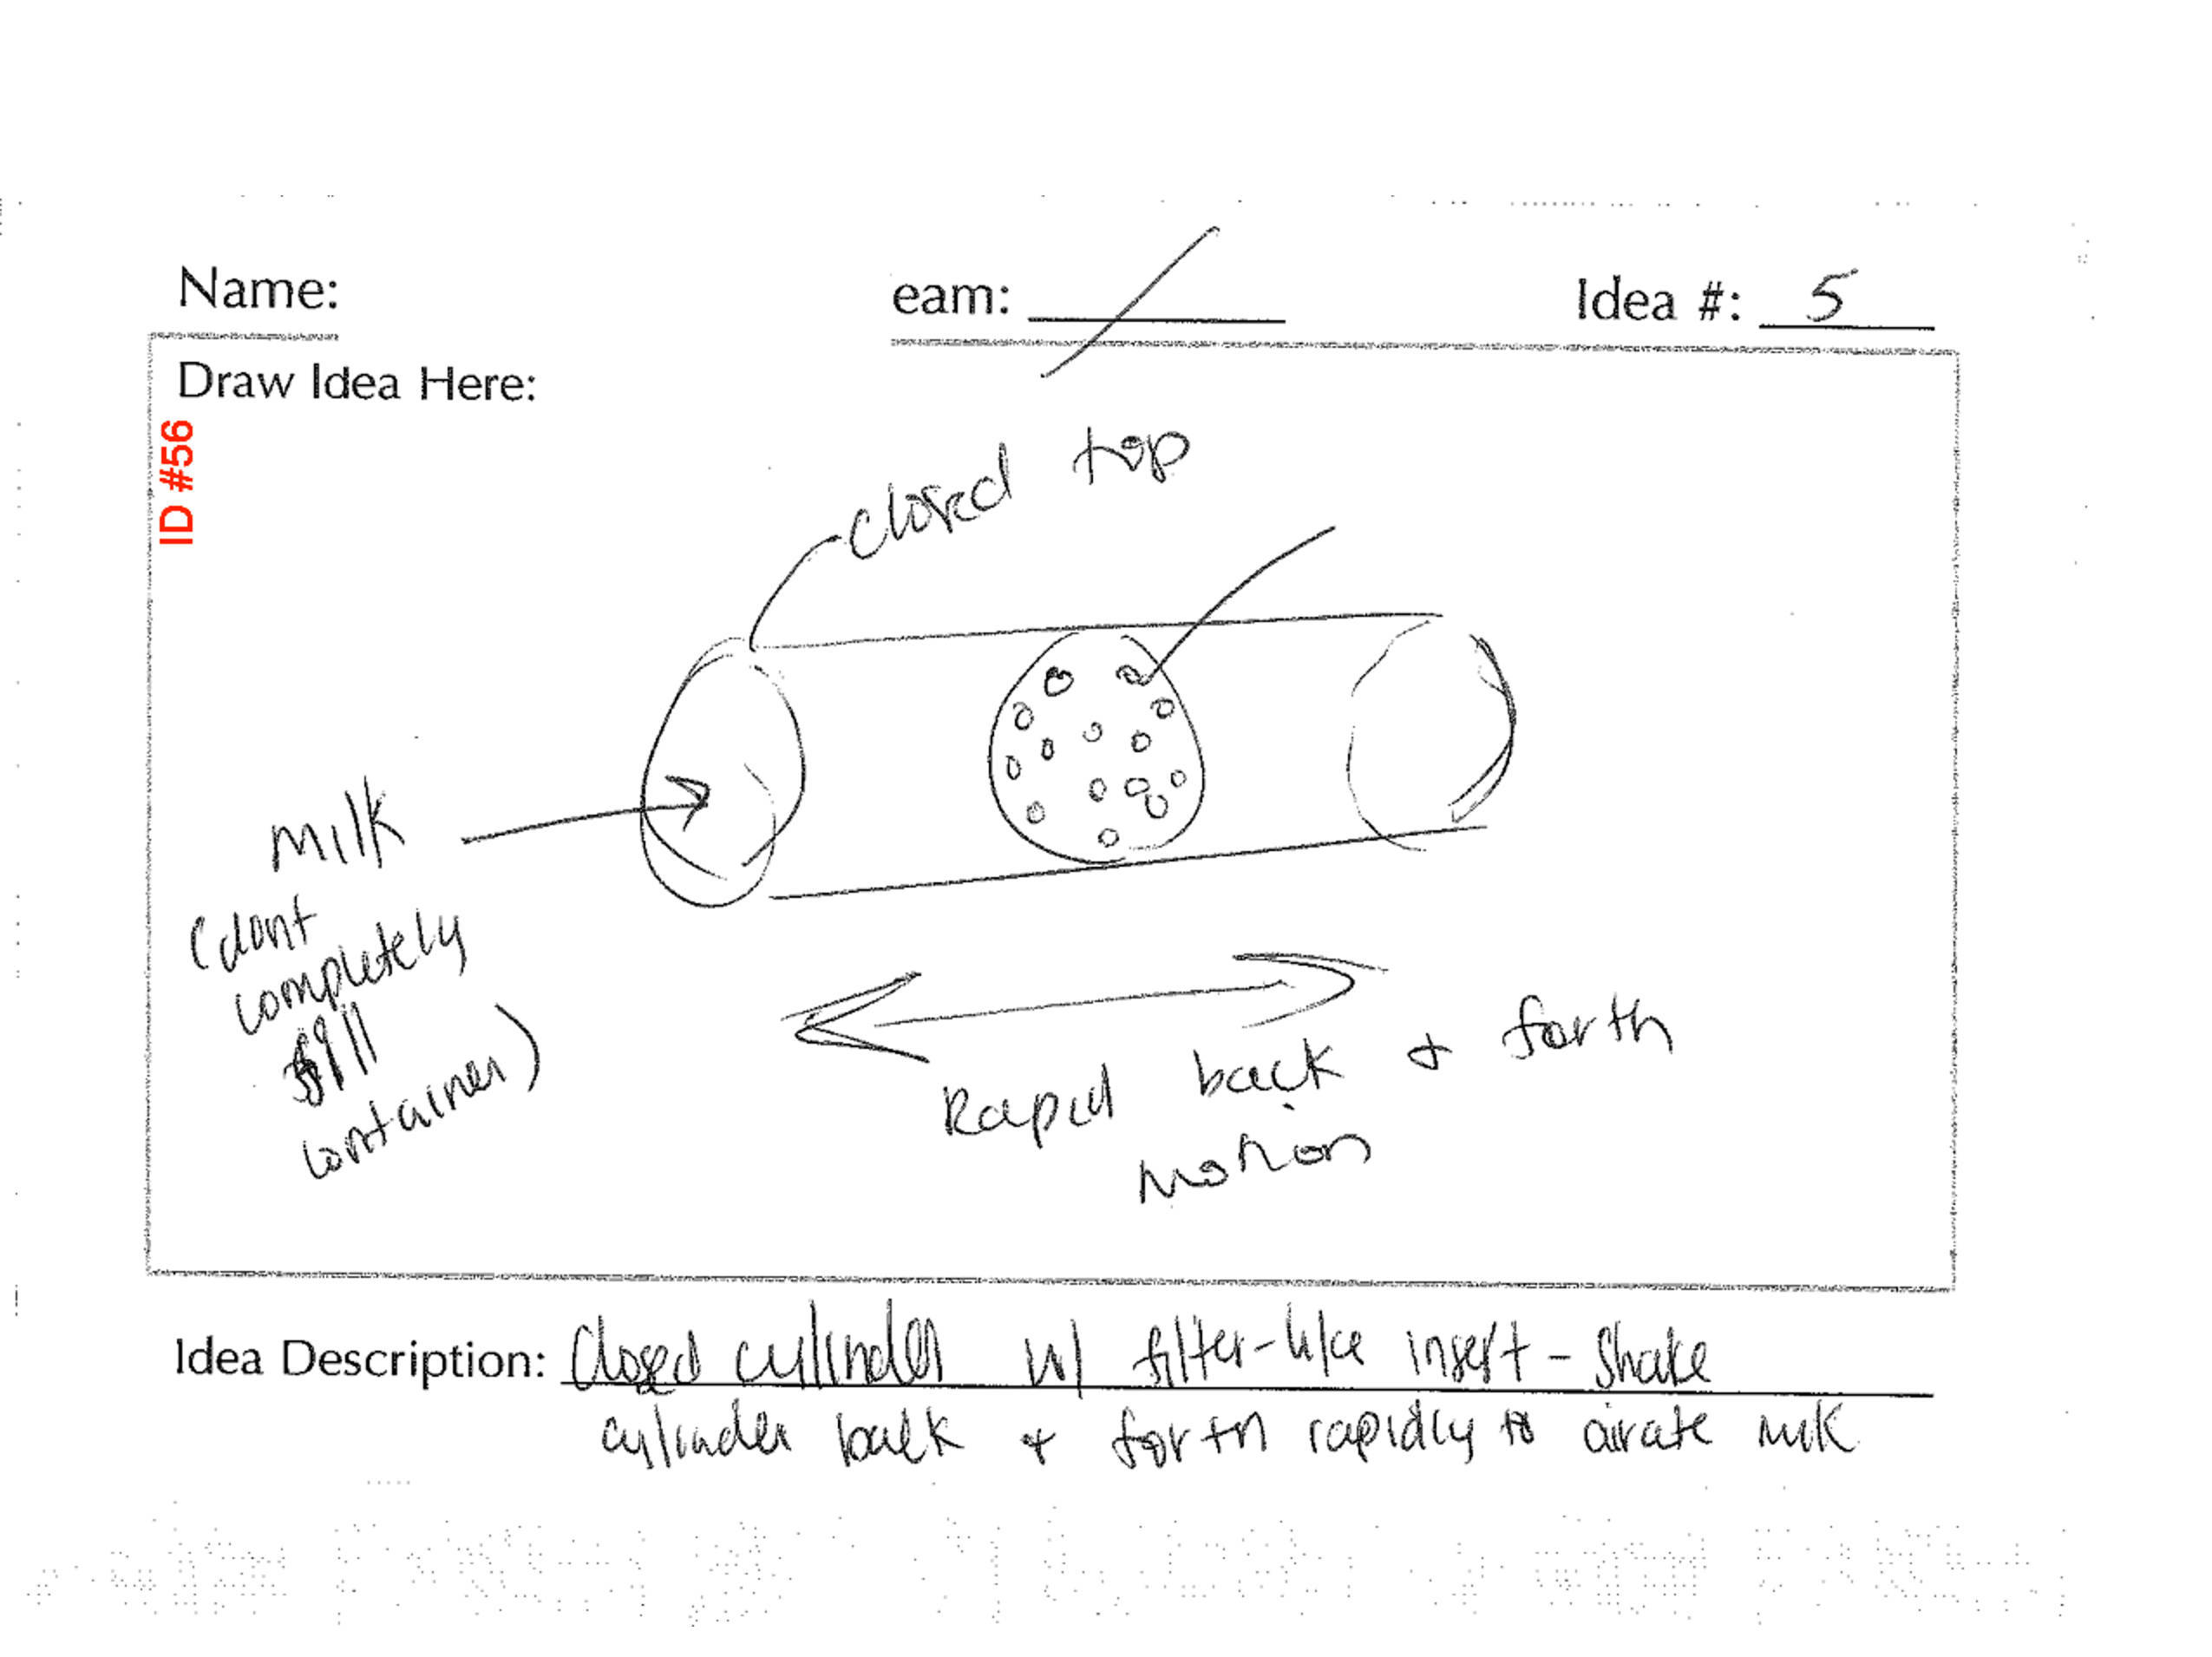 Name:
eam:
Idea #: 5
Draw Idea Here:
ID #56
closed top
Milk
(dont
completely
fill
container)
Rapid back & forth
motion
Idea Description: Closed cylinder w/ filter-like insert - Shake
cylinder back & forth rapidly to airate milk